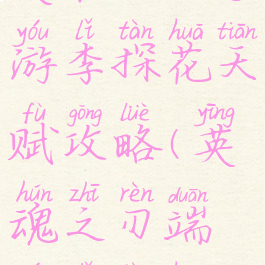 yóu lǐ tàn huā tiān
游李探花天
fù gōng lüè yīng
赋攻略(英
hún zhī rèn duān
魂之刃端